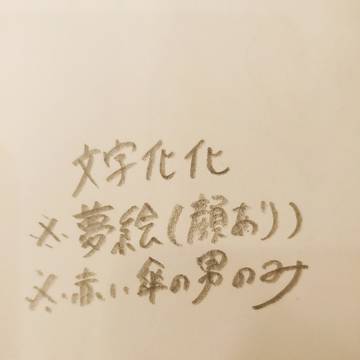 文字化化
※夢絵(顔あり)
※赤い傘の男のみ